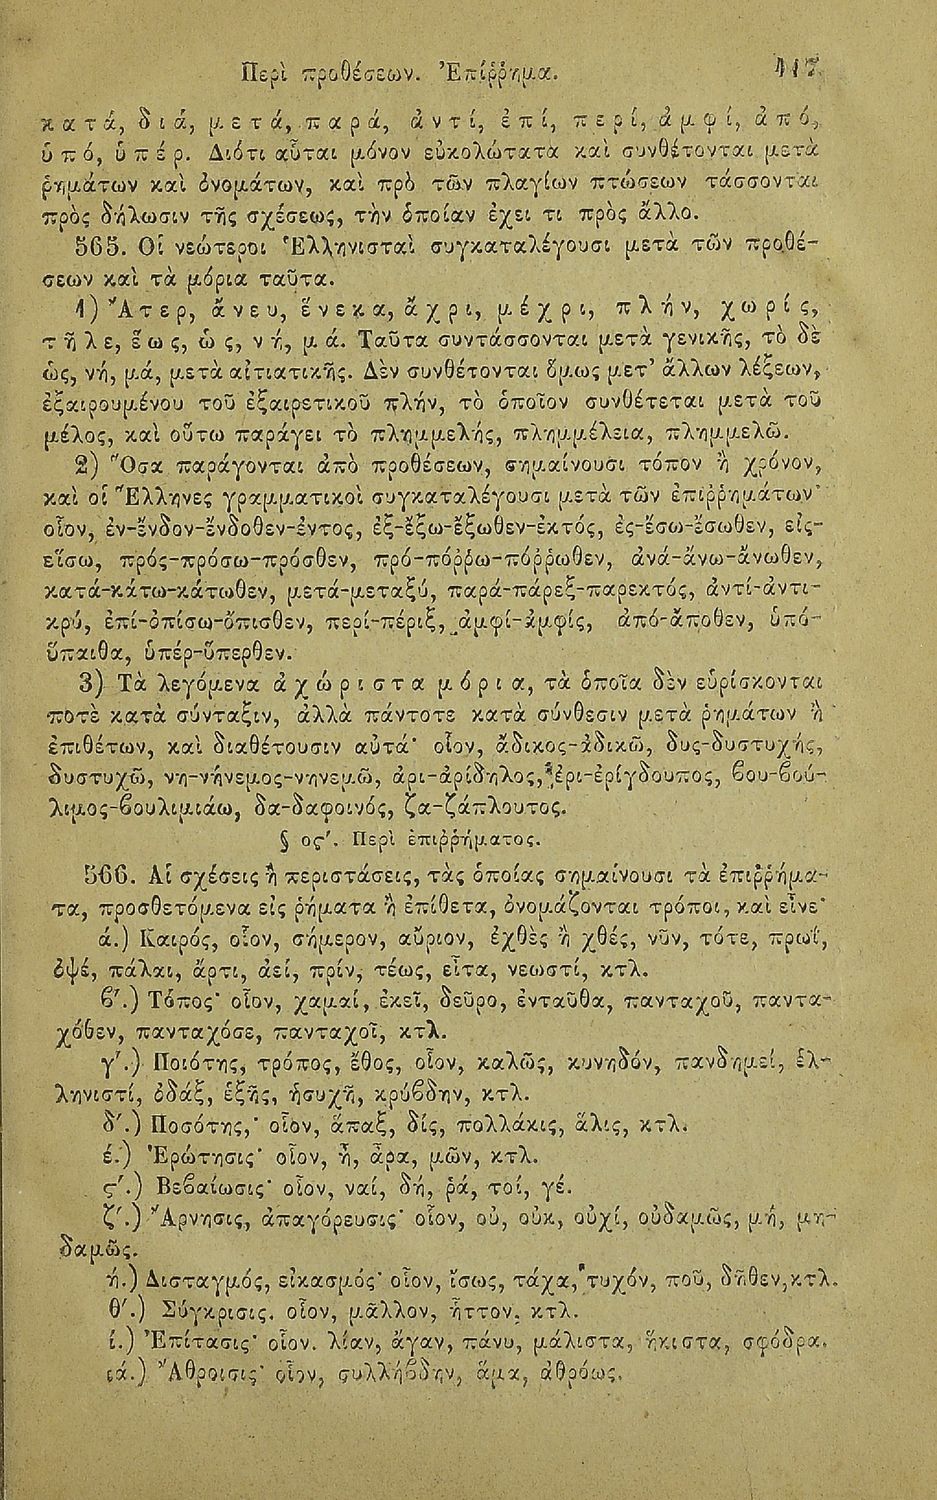 Περὶ προθέσεων. Ἐπίῤῥημα. 117
κατά, διά, μετά, παρά, ἀντί, ἐπί, περί, ἀμφί, ἀπό,
ὑπό, ὑπέρ. Διότι αὗται μόνον εὐκολώτατα καὶ συνθέτονται μετὰ
ῥημάτων καὶ ὀνομάτων, καὶ πρὸ τῶν πλαγίων πτώσεων τάσσονται
πρὸς δήλωσιν τῆς σχέσεως, τὴν ὁποίαν ἔχει τι πρὸς ἄλλο.
565. Οἱ νεώτεροι Ἑλληνισταὶ συγκαταλέγουσι μετὰ τῶν προθέ-
σεων καὶ τὰ μόρια ταῦτα.
1) Ἄτερ, ἄνευ, ἕνεκα, ἄχρι, μέχρι, πλήν, χωρίς,
τῆλε, ἕως, ὡς, νή, μά. Ταῦτα συντάσσονται μετὰ γενικῆς, τὸ δὲ
ὡς, νή, μά, μετὰ αἰτιατικῆς. Δὲν συνθέτονται ὅμως μετ' ἄλλων λέξεων,
ἐξαιρουμένου τοῦ ἐξαιρετικοῦ πλήν, τὸ ὁποῖον συνθέτεται μετὰ τοῦ
μέλος, καὶ οὕτω παράγει τὸ πλημμελής, πλημμέλεια, πλημμελῶ.
2) Ὅσα παράγονται ἀπὸ προθέσεων, σημαίνουσι τόπον ἢ χρόνον,
καὶ οἱ Ἕλληνες γραμματικοὶ συγκαταλέγουσι μετὰ τῶν ἐπιῤῥημάτων·
οἷον, ἐν-ἔνδον-ἔνδοθεν-ἐντος, ἐξ-ἔξω-ἔξωθεν-ἐκτός, ἐς-ἔσω-ἔσωθεν, εἰς-
εἴσω, πρός-πρόσω-πρόσθεν, πρό-πόῤῥω-πόῤῥωθεν, ἀνά-ἄνω-ἄνωθεν,
κατά-κάτω-κάτωθεν, μετά-μεταξύ, παρά-πάρεξ-παρεκτός, ἀντί-ἀντι-
κρύ, ἐπί-ὀπίσω-ὄπισθεν, περί-πέριξ, ἀμφί-ἀμφίς, ἀπό-ἄποθεν, ὑπό-
ὕπαιθα, ὑπέρ-ὕπερθεν.
3) Τὰ λεγόμενα ἀχώριστα μόρια, τὰ ὁποῖα δὲν εὑρίσκονται
ποτὲ κατὰ σύνταξιν, ἀλλὰ πάντοτε κατὰ σύνθεσιν μετὰ ῥημάτων ἢ
ἐπιθέτων, καὶ διαθέτουσιν αὐτά· οἷον, ἄδικος-ἀδικῶ, δυς-δυστυχής,
δυστυχῶ, νη-νήνεμος-νηνεμῶ, ἀρι-ἀρίδηλος, ἐρι-ἐρίγδουπος, βου-βού-
λιμος-βουλιμιάω, δα-δαφοινός, ζα-ζάπλουτος.
§ οϛ'. Περὶ ἐπιῤῥήματος.
566. Αἱ σχέσεις ἢ περιστάσεις, τὰς ὁποίας σημαίνουσι τὰ ἐπιῤῥήμα-
τα, προσθετόμενα εἰς ῥήματα ἢ ἐπίθετα, ὀνομάζονται τρόποι, καὶ εἶνε·
ά.) Καιρός, οἷον, σήμερον, αὔριον, ἐχθὲς ἢ χθές, νῦν, τότε, πρωΐ,
ὀψέ, πάλαι, ἄρτι, ἀεί, πρίν, τέως, εἶτα, νεωστί, κτλ.
β'.) Τόπος· οἷον, χαμαί, ἐκεῖ, δεῦρο, ἐνταῦθα, πανταχοῦ, παντα-
χόθεν, πανταχόσε, πανταχοῖ, κτλ.
γ'.) Ποιότης, τρόπος, ἔθος, οἷον, καλῶς, κυνηδόν, πανδημεί, ἑλ-
ληνιστί, ὀδάξ, ἑξῆς, ἡσυχῆ, κρύβδην, κτλ.
δ'.) Ποσότης,· οἷον, ἅπαξ, δίς, πολλάκις, ἅλις, κτλ.
έ.) Ἐρώτησις· οἷον, ἦ, ἆρα, μῶν, κτλ.
ϛ'.) Βεβαίωσις· οἷον, ναί, δή, ῥά, τοί, γέ.
ζ'.) Ἄρνησις, ἀπαγόρευσις· οἷον, οὐ, οὐκ, οὐχί, οὐδαμῶς, μή, μη-
δαμῶς.
ή.) Δισταγμός, εἰκασμός· οἷον, ἴσως, τάχα, τυχόν, ποῦ, δῆθεν, κτλ.
θ'.) Σύγκρισις. οἷον, μᾶλλον, ἧττον, κτλ.
ί.) Ἐπίτασις· οἷον. λίαν, ἄγαν, πάνυ, μάλιστα, ἥκιστα, σφόδρα.
ιά.) Ἄθροισις· οἷον, συλλήβδην, ἅμα, ἀθρόως.